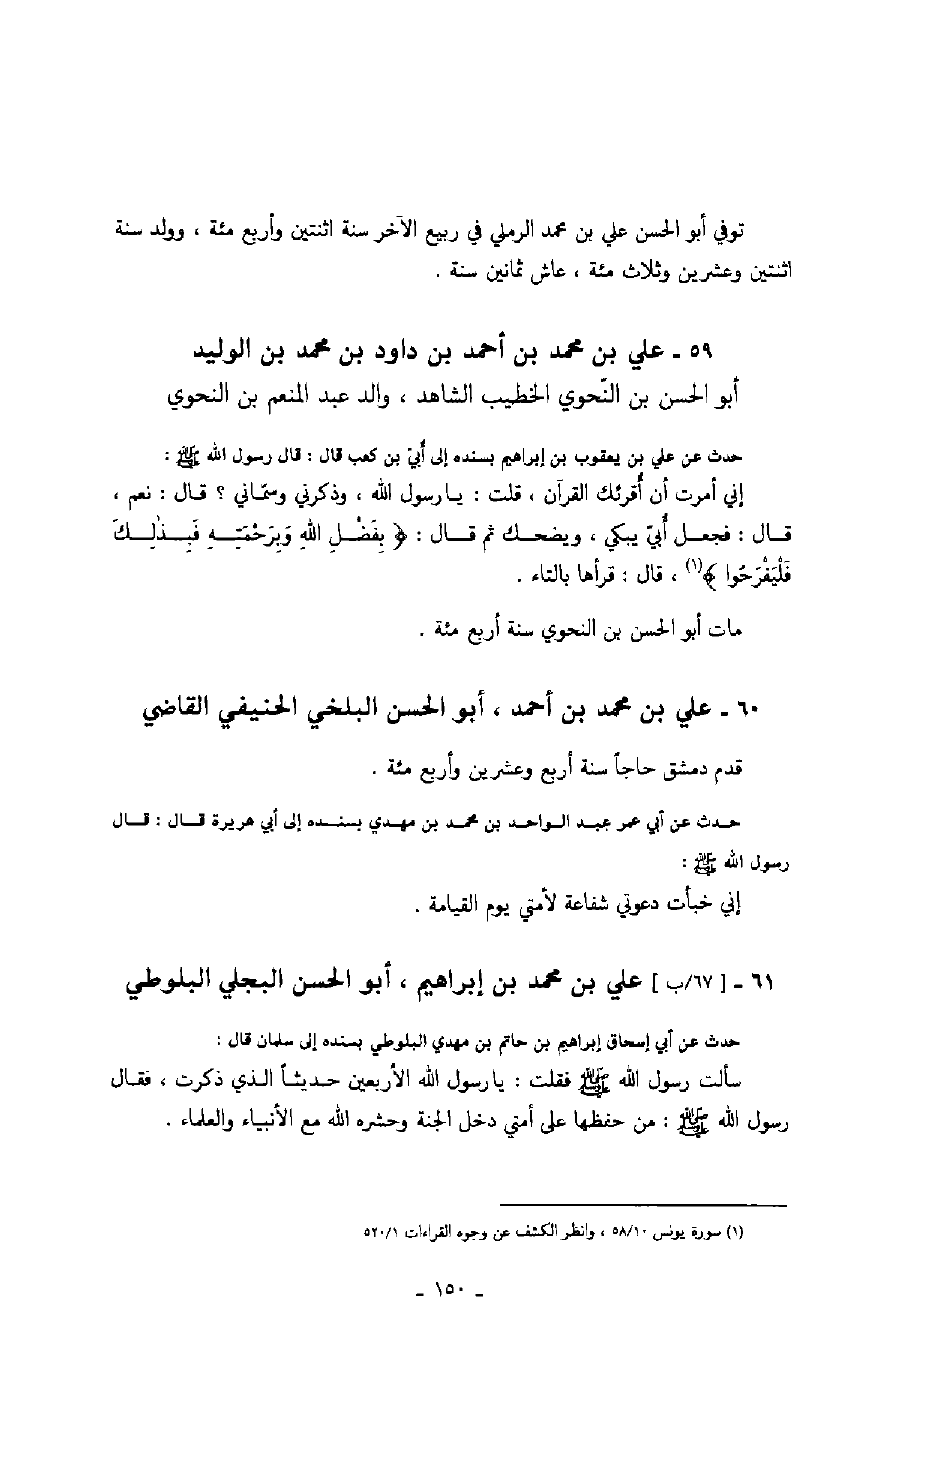 توفي أبو الحسن علي بن محمد الرملي في ربيع الآخر سنة اثنتين وأربع مئة ، وولد سنة
اثنتين وعشرين وثلاث مئة ، عاش ثمانين سنة .
٥٩ ـ علي بن محمد بن أحمد بن داود بن محمد بن الوليد
أبو الحسن بن النّحوي الخطيب الشاهد ، والد عبد المنعم بن النحوي
حدث عن علي بن يعقوب بن إبراهيم بسنده إلى أُبيّ بن كعب قال : قال رسول الله ﷺ :
إني أمرت أن أُقرئك القرآن ، قلت : يـارسول الله ، وذكرني وسمّـاني ؟ قـال : نعم ،
قـال : فجعـل أُبيّ يبكي ، ويضحـك ثم قـال : ﴿ بِفَضْـلِ اللهِ وَبِرَحْمَتِـهِ فَبِـذٰلِـكَ
فَلْيَفْرَحُوا ﴾(١) ، قال : قرأها بالتاء .
مات أبو الحسن بن النحوي سنة أربع مئة .
٦٠ ـ علي بن محمد بن أحمد ، أبو الحسن البلخي الحنيفي القاضي
قدم دمشق حاجاً سنة أربع وعشرين وأربع مئة .
حـدث عن أبي عمر عبـد الـواحـد بن محمـد بن مهـدي بسنـده إلى أبي هريرة قـال : قـال
رسول الله ﷺ :
إني خبأت دعوتي شفاعة لأمتي يوم القيامة .
٦١ ـ [ ٦٧/ب ] علي بن محمد بن إبراهيم ، أبو الحسن البجلي البلوطي
حدث عن أبي إسحاق إبراهيم بن حاتم بن مهدي البلوطي بسنده إلى سلمان قال :
سألت رسول الله ﷺ فقلت : يارسول الله الأربعين حـديثـاً الـذي ذكرت ، فقـال
رسول الله ﷺ : من حفظها على أمتي دخل الجنة وحشره الله مع الأنبياء والعلماء .
(١) سورة يونس ٥٨/١٠ ، وانظر الكشف عن وجوه القراءات ٥٢٠/١
ـ ١٥٠ ـ